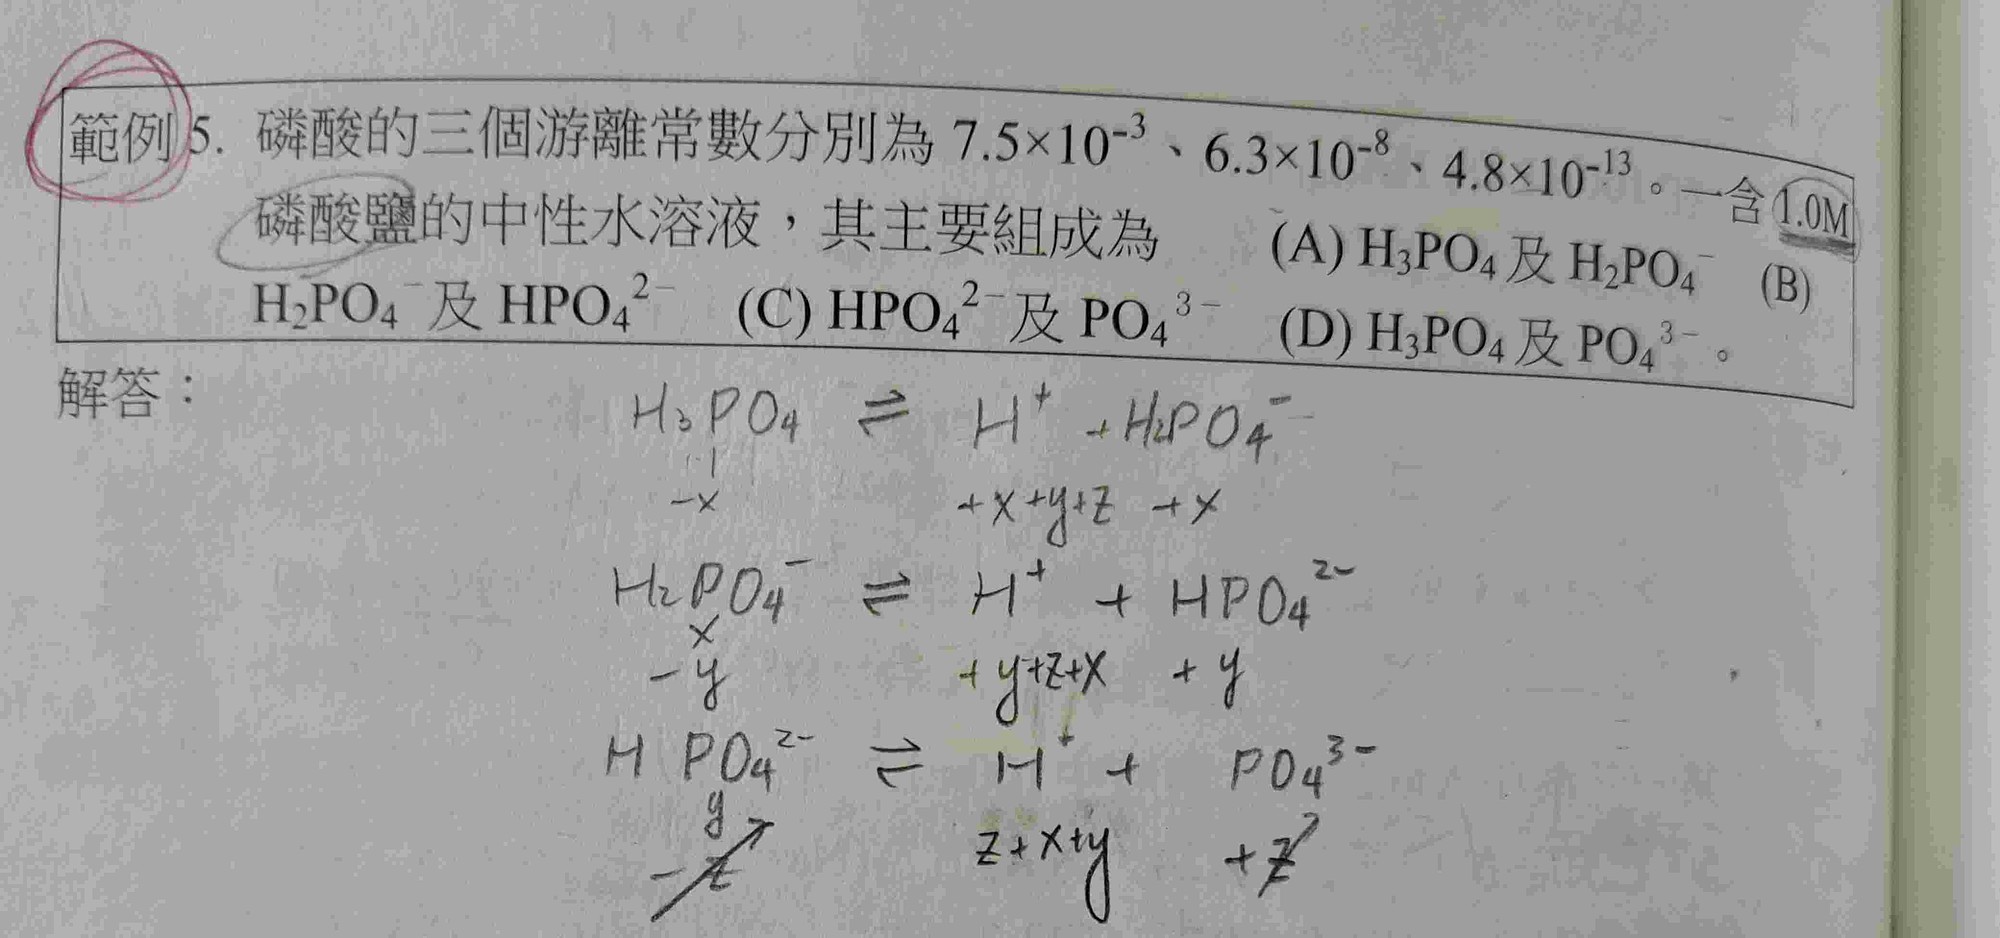 範例5. 磷酸的三個游離常數分別為 7.5×10⁻³、6.3×10⁻⁸、4.8×10⁻¹³。一含 1.0M
磷酸鹽的中性水溶液，其主要組成為 (A) H₃PO₄ 及 H₂PO₄⁻ (B)
H₂PO₄⁻ 及 HPO₄²⁻ (C) HPO₄²⁻ 及 PO₄³⁻ (D) H₃PO₄ 及 PO₄³⁻。
解答：
H₃PO₄ ⇌ H⁺ + H₂PO₄⁻
1
-x +x+y+z +x
H₂PO₄⁻ ⇌ H⁺ + HPO₄²⁻
x
-y +y+z+x +y
HPO₄²⁻ ⇌ H⁺ + PO₄³⁻
y
-z z+x+y +z